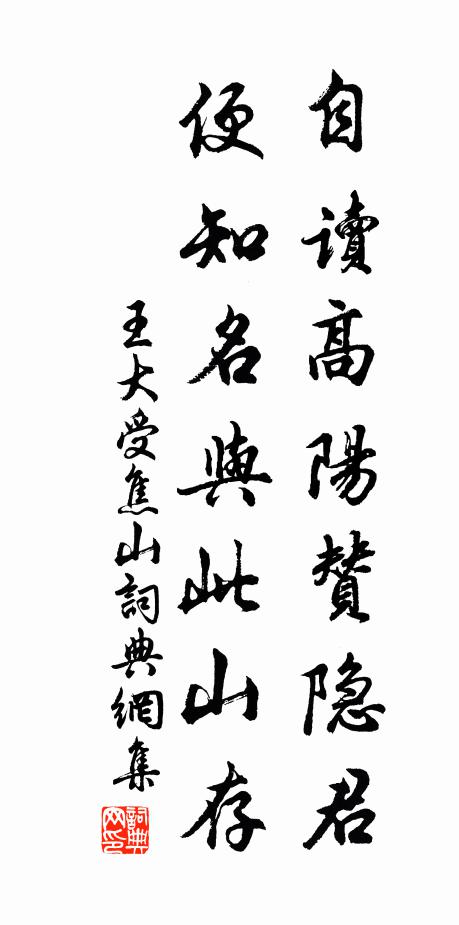 自讀高陽赞隐君
便知名與此山存
王大受焦山詞典網集
詞典网印